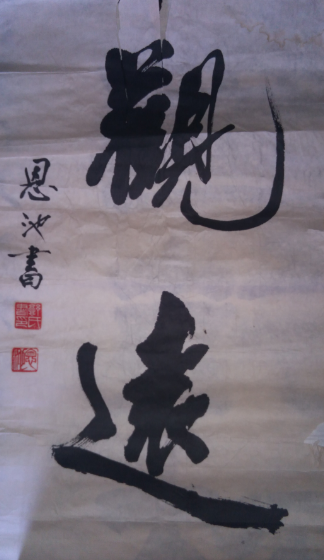 觀遠
恩沙書